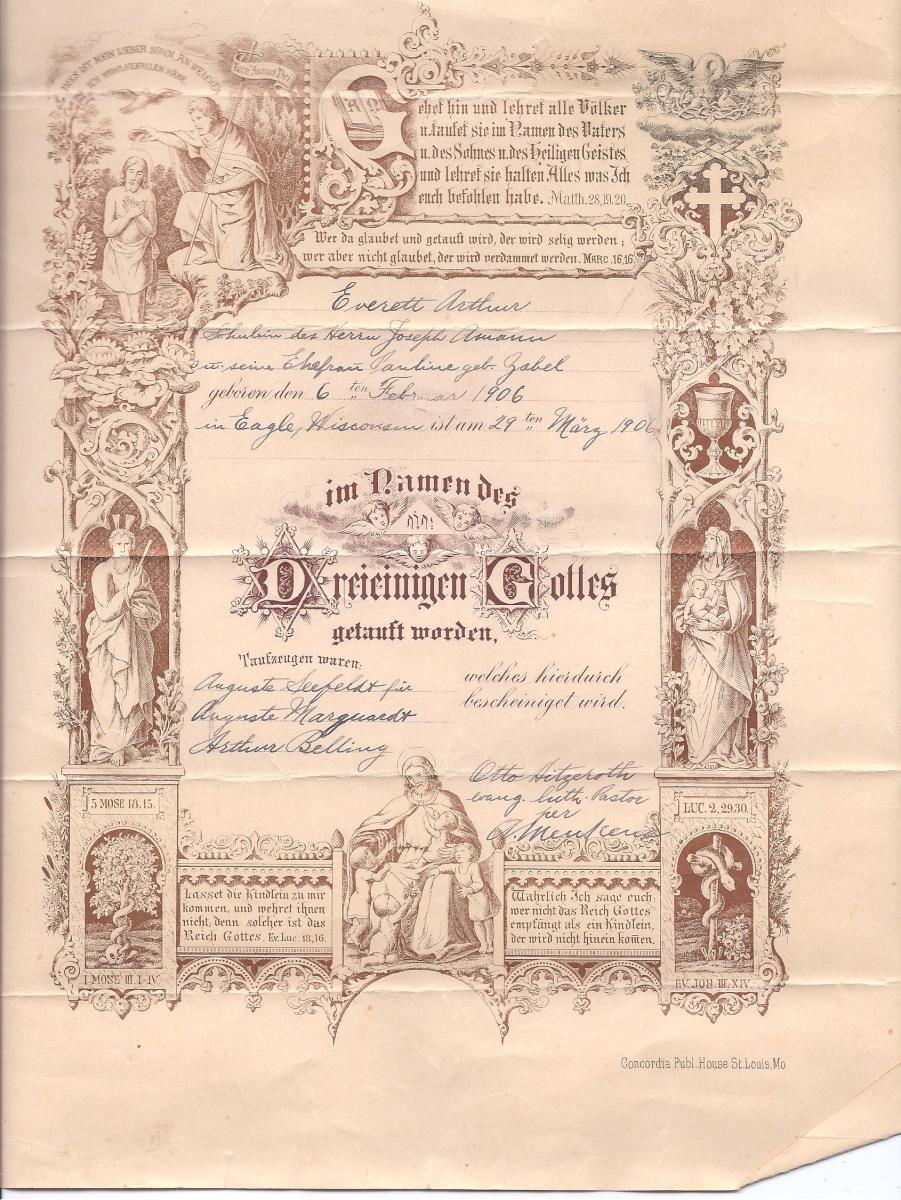 DIES IST MEIN LIEBER SOHN, AN WELCHEM
ICH WOHLGEFALLEN HABE.
Ecce Agnus Dei
Gehet hin und lehret alle Völker
u. taufet sie im Namen des Vaters
u. des Sohnes u. des Heiligen Geistes,
und lehret sie halten Alles was Ich
euch befohlen habe. Matth. 28,19.20.
Wer da glaubet und getauft wird, der wird selig werden;
wer aber nicht glaubet, der wird verdammet werden. MARC. 16,16.
Everett Arthur
des Herrn Joseph Amann
u. seine Ehefrau Pauline geb. Zabel
geboren den 6 ten Februar 1906
in Eagle, Wisconsin ist am 29 ten März 1906
im Namen des
Dreieinigen Gottes
getauft worden,
Taufzeugen waren:
welches hierdurch
bescheiniget wird.
Auguste Seefeldt für
Auguste Marquardt
Arthur Belling
Otto Hitzeroth
evang. luth. Pastor
per
A. Meukens
5 MOSE 18.15.
LUC. 2, 29.30.
Lasset die Kindlein zu mir
kommen, und wehret ihnen
nicht, denn solcher ist das
Reich Gottes. Ev. Luc. 18,16.
Wahrlich Ich sage euch:
wer nicht das Reich Gottes
empfängt als ein Kindlein,
der wird nicht hinein kom̅en.
I MOSE III. I-IV.
EV. JOH. III. XIV.
Concordia Publ. House St. Louis, Mo.